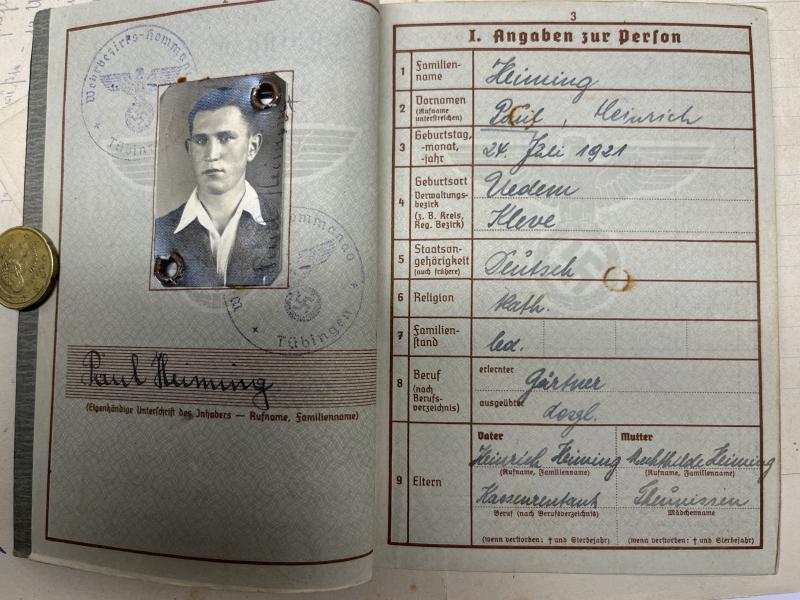 Wehrbezirks-Kommando
Tübingen
Kommando
Tübingen
Paul Heiming
(Eigenhändige Unterschrift des Inhabers — Rufname, Familienname)
3
I. Angaben zur Person
1 Familien-
name
Heiming
2 Vornamen
(Rufname
unterstreichen)
Paul, Heinrich
3 Geburtstag,
-monat,
-jahr
24. Juli 1921
4 Geburtsort
Verwaltungs-
bezirk
(z. B. Kreis,
Reg. Bezirk)
Uedem
Kleve
5 Staatsan-
gehörigkeit
(auch frühere)
Deutsch
6 Religion
kath.
7 Familien-
stand
led.
8 Beruf
(nach
Berufs-
verzeichnis)
erlernter
Gärtner
ausgeübter
desgl.
9 Eltern
Vater
Heinrich Heiming
(Rufname, Familienname)
Kassenrentant
Beruf (nach Berufsverzeichnis)
(wenn verstorben: † und Sterbejahr)
Mutter
Mechthilde Heiming
(Rufname, Familienname)
Theunissen
Mädchenname
(wenn verstorben: † und Sterbejahr)